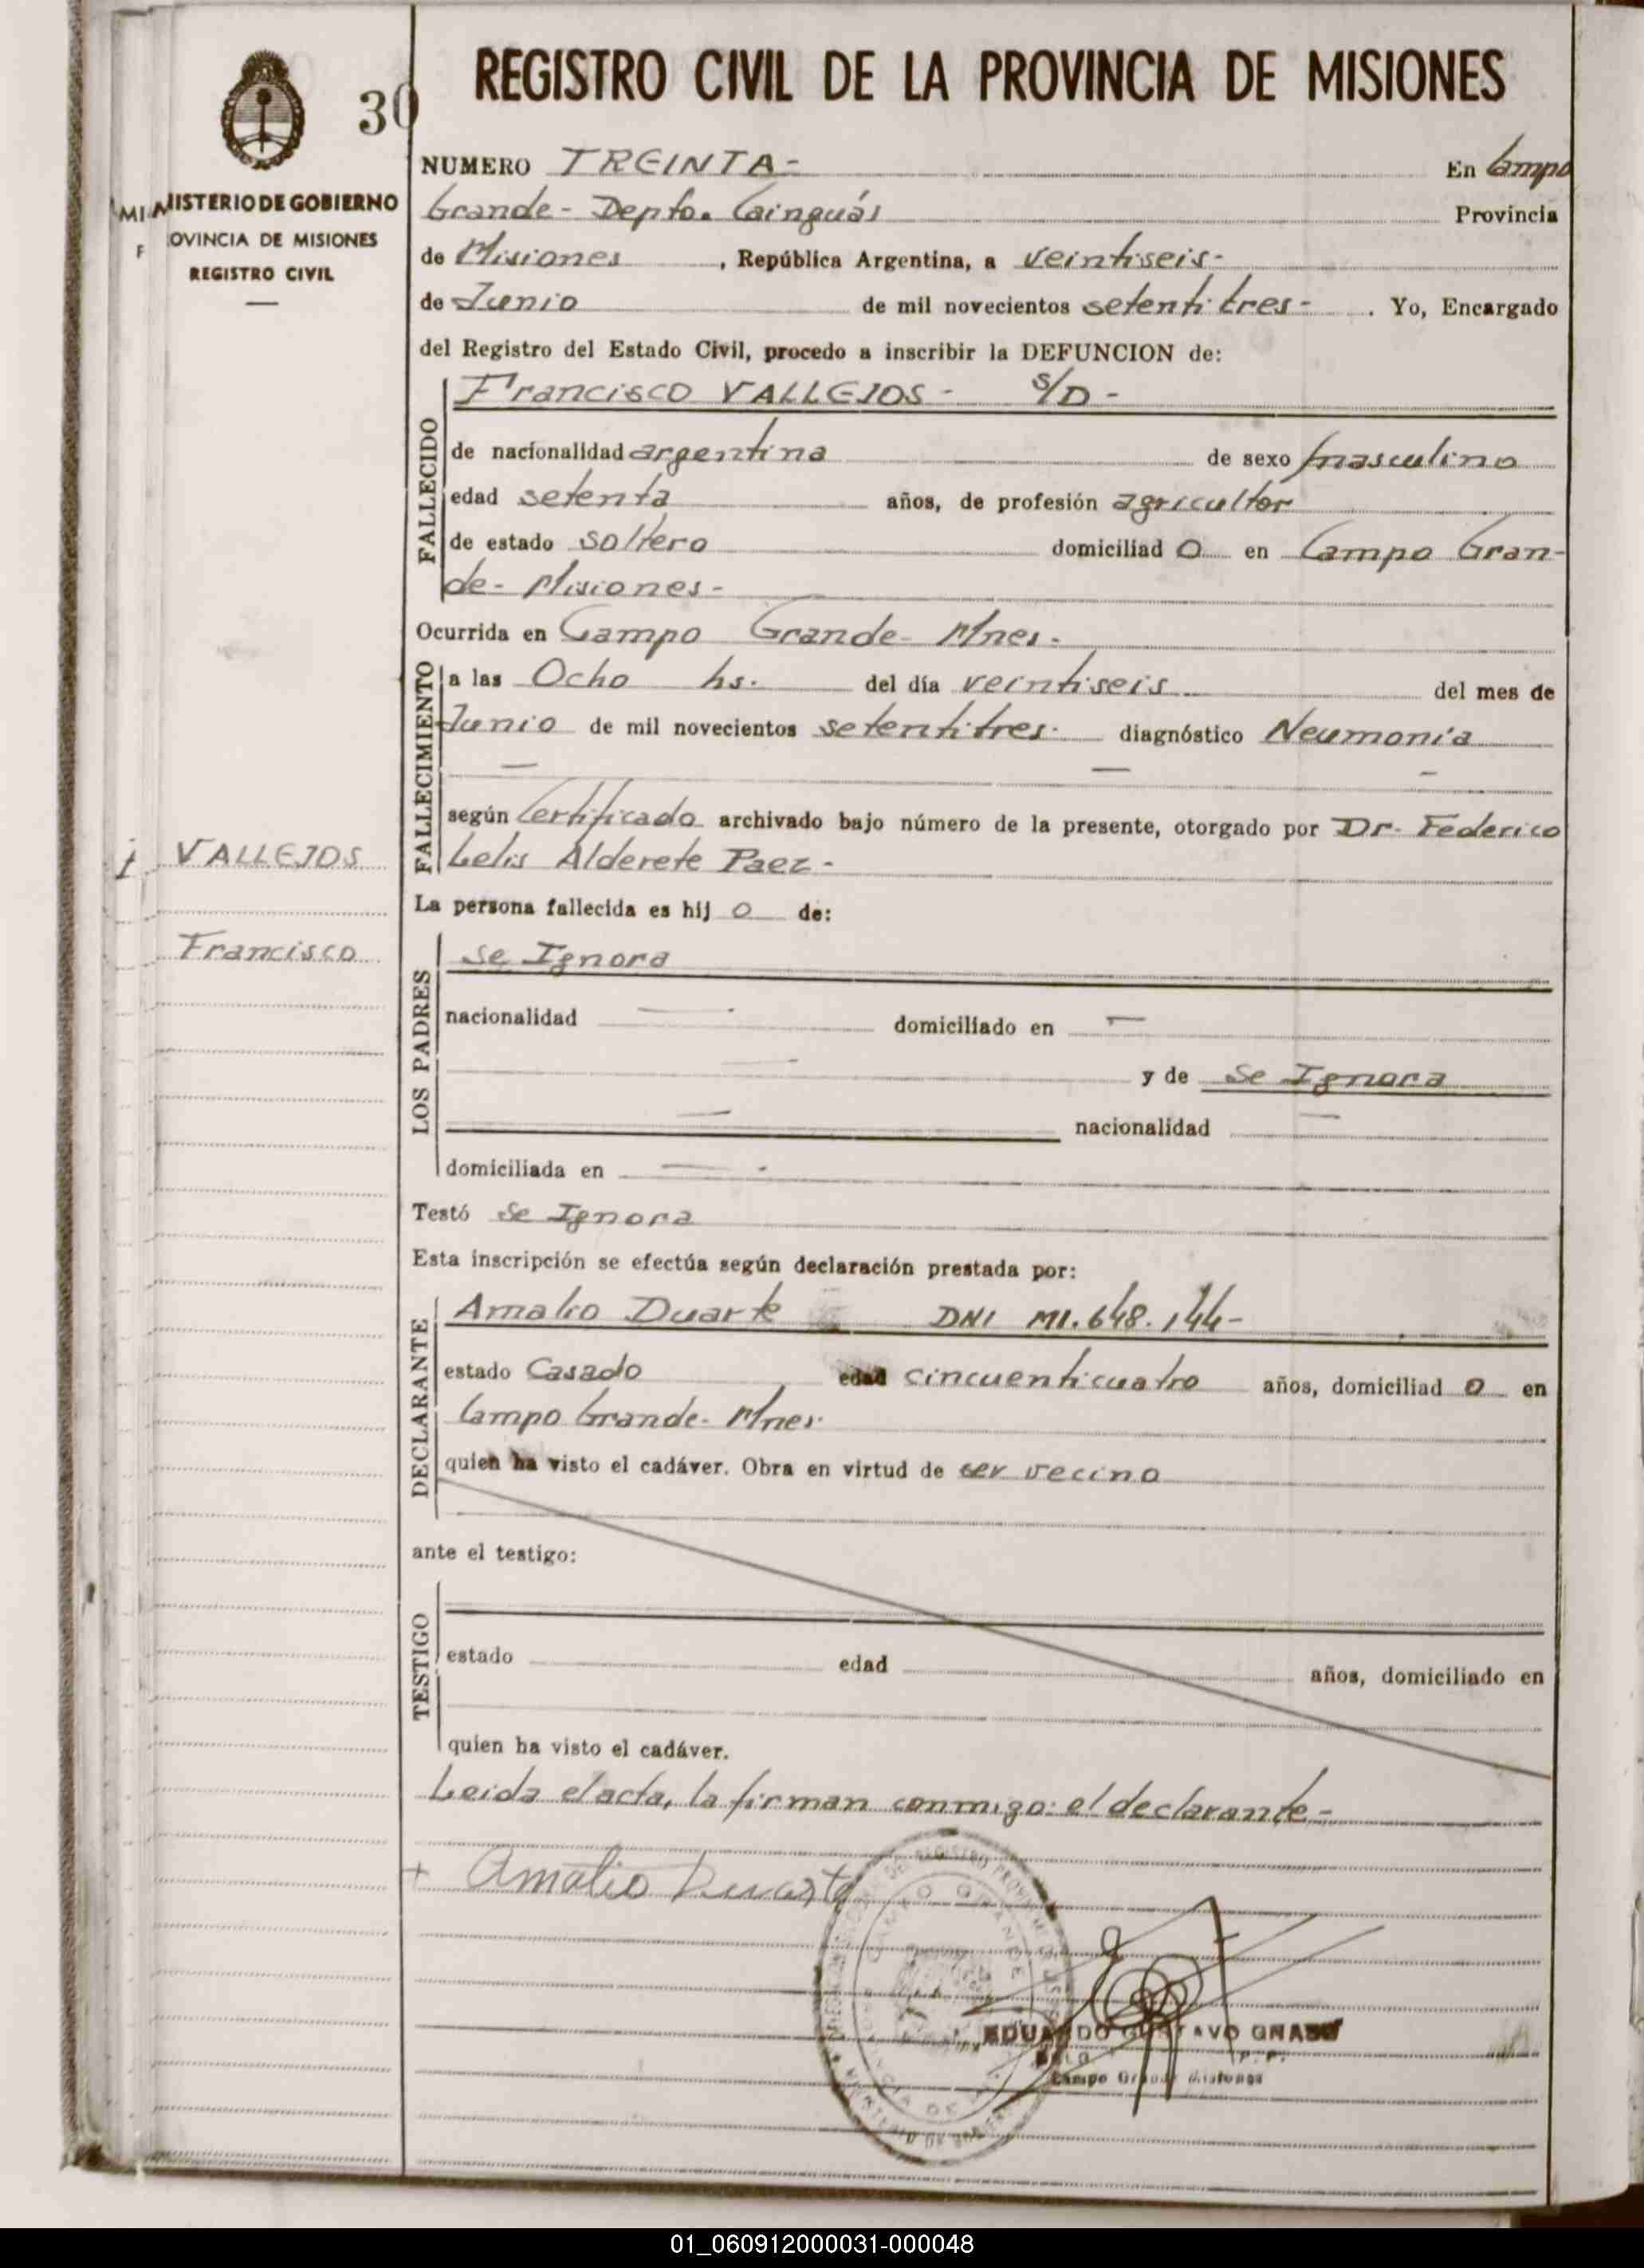 REGISTRO CIVIL DE LA PROVINCIA DE MISIONES
30
MINISTERIO DE GOBIERNO
OVINCIA DE MISIONES
REGISTRO CIVIL
NUMERO TREINTA- En Campo
Grande- Depto. Cainguás Provincia
de Misiones, República Argentina, a veintiseis-
de Junio de mil novecientos setentitres-. Yo, Encargado
del Registro del Estado Civil, procedo a inscribir la DEFUNCION de:
FALLECIDO
Francisco VALLEJOS- S/D-
de nacionalidad argentina de sexo masculino
edad setenta años, de profesión agricultor
de estado soltero domiciliad o en Campo Gran-
de- Misiones-
Ocurrida en Campo Grande- Mnes.
FALLECIMIENTO
a las Ocho hs. del día veintiseis del mes de
Junio de mil novecientos setentitres- diagnóstico Neumonia
según Certificado archivado bajo número de la presente, otorgado por Dr. Federico
Lelis Alderete Paez-
VALLEJOS
Francisco
La persona fallecida es hij o de:
LOS PADRES
se Ignora
nacionalidad — domiciliado en —
— y de Se Ignora
— nacionalidad —
domiciliada en —
Testó Se Ignora
Esta inscripción se efectúa según declaración prestada por:
DECLARANTE
Amalio Duarte DNI MI. 648. 144-
estado Casado edad cincuenticuatro años, domiciliad o en
Campo Grande- Mnes.
quien ha visto el cadáver. Obra en virtud de ser vecino
ante el testigo:
TESTIGO
estado edad años, domiciliado en
quien ha visto el cadáver.
Leida el acta, la firman conmigo: el declarante-
+ Amalio Duarte
CAMPO GRANDE
EDUARDO GUSTAVO
Campo Grande Misiones
01_060912000031-000048